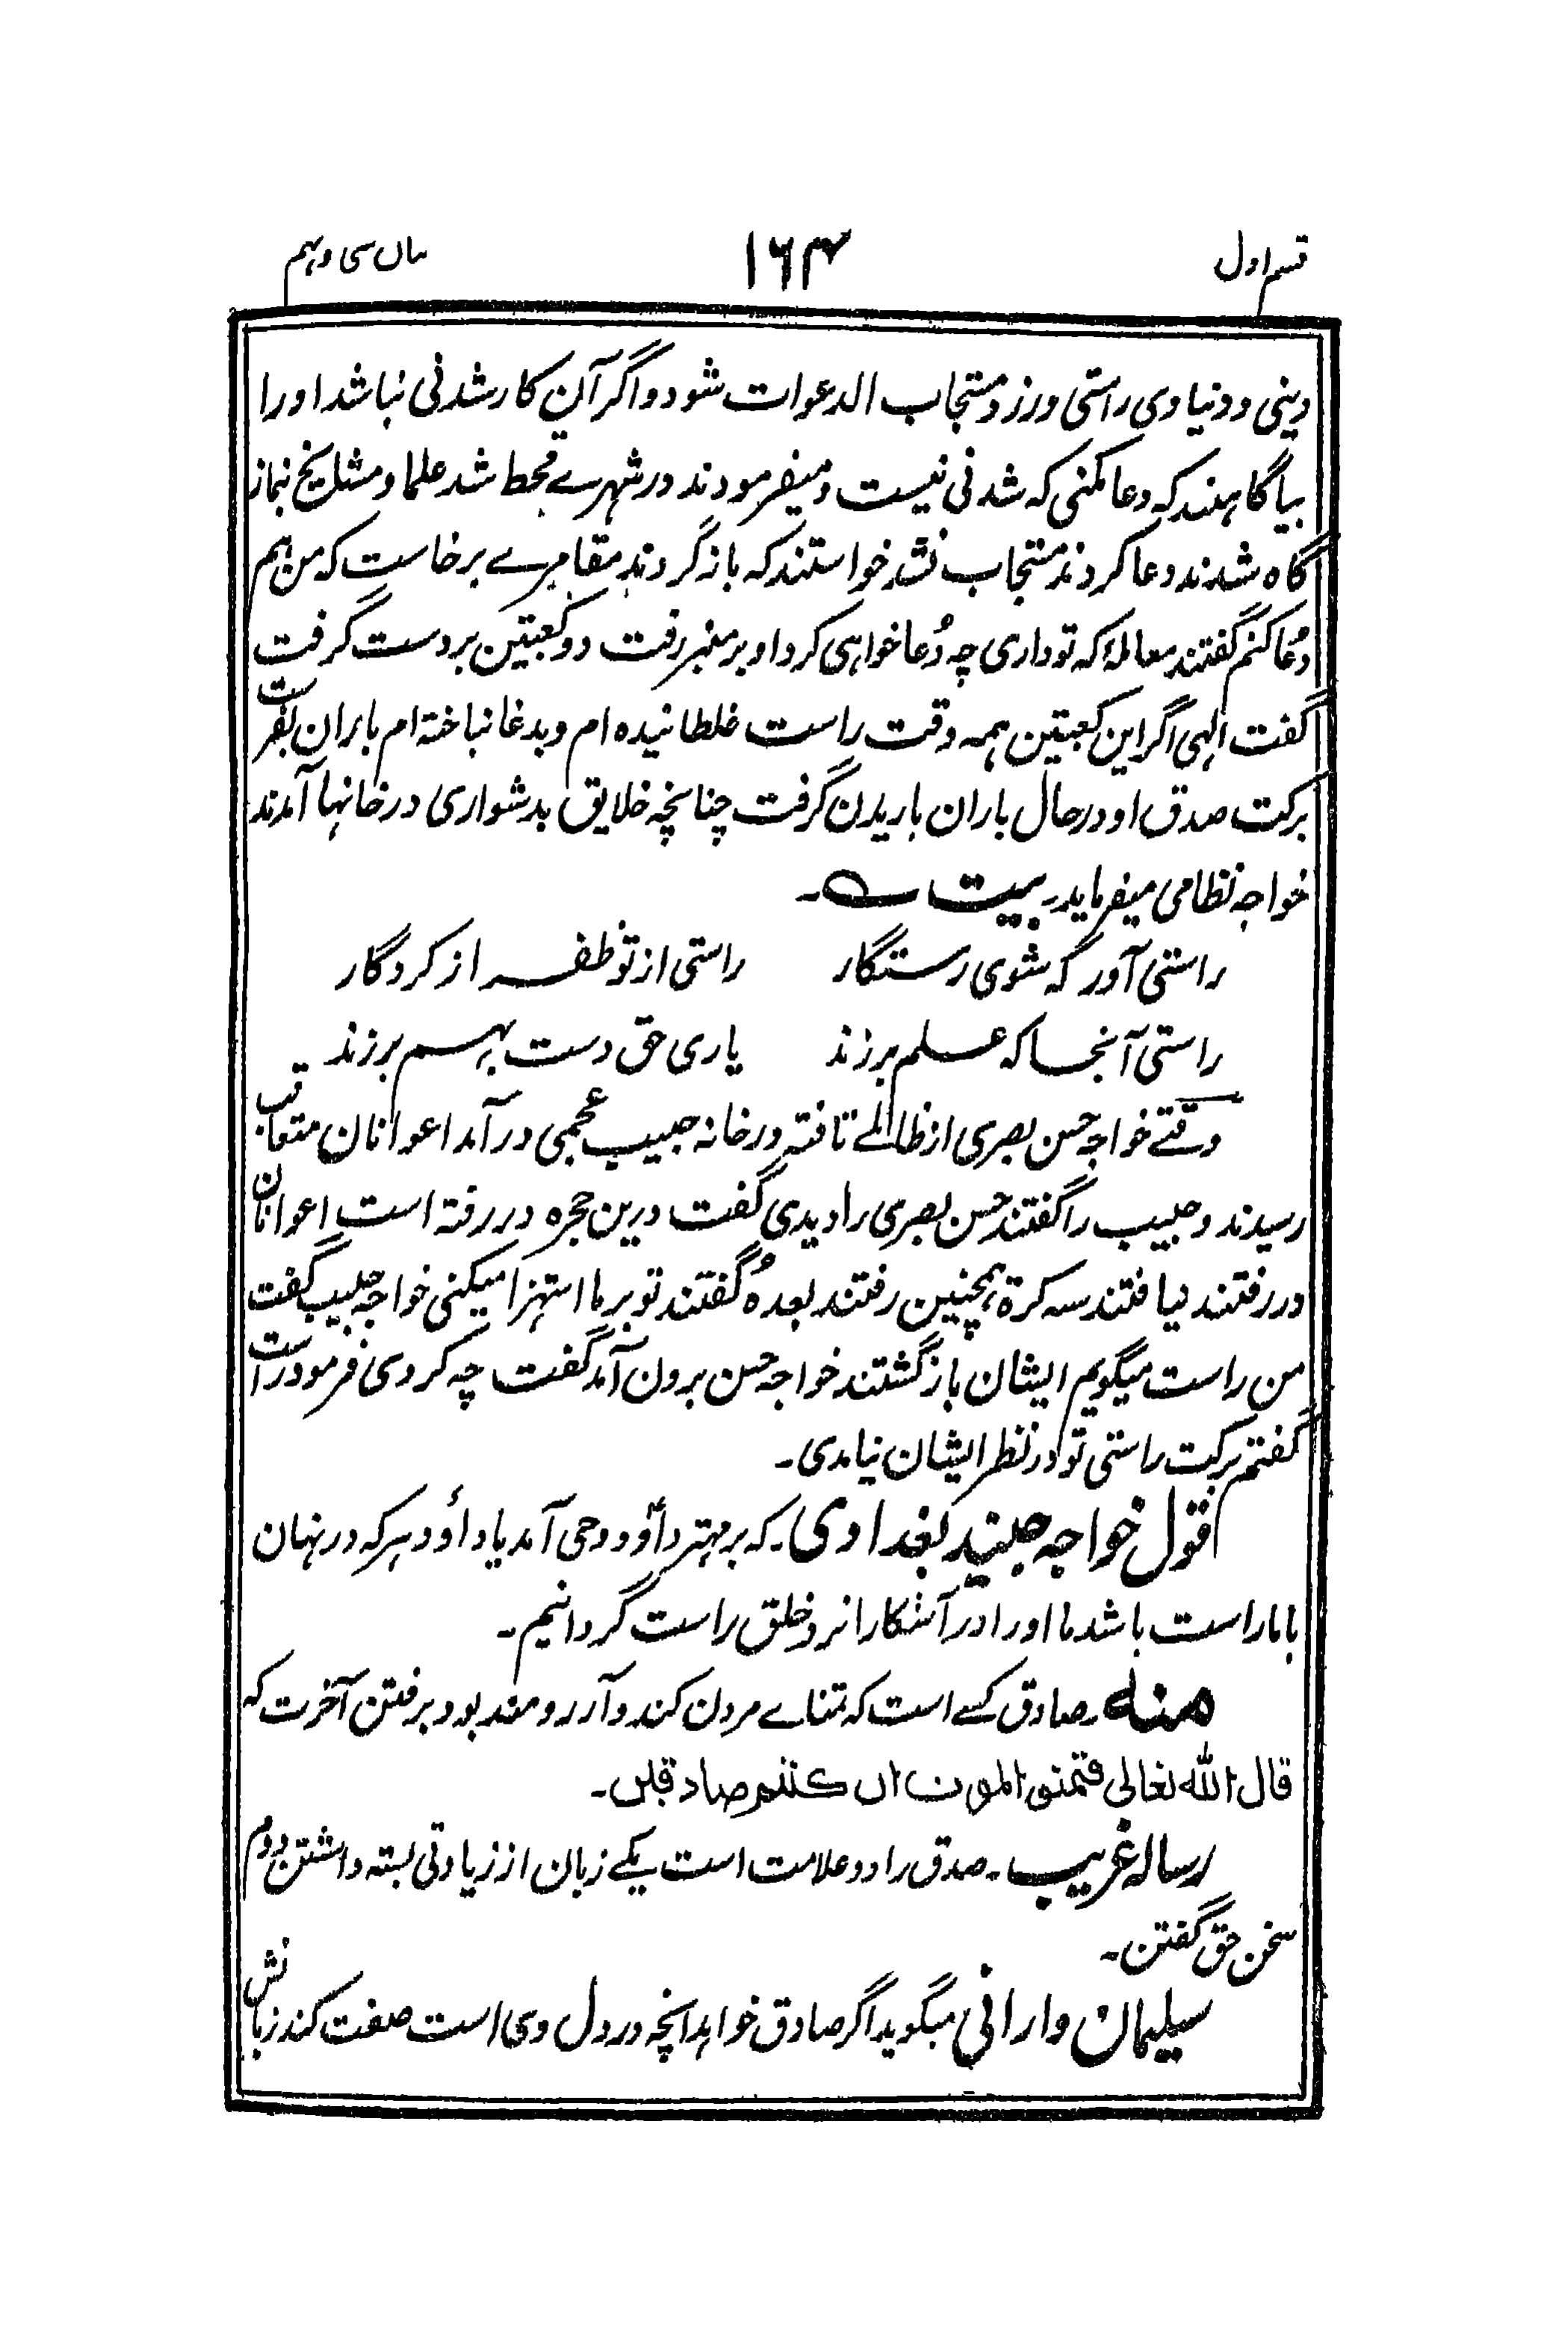 قسم اول ۱۶۴ بیان سی و نهم
دینی و دنیاوی راستی ورزد مستجاب الدعوات شود و اگر آن کار شدنی نباشد او را
بیاگاهنند که دعا مکنی که شدنی نیست و میفرمودند در شهرے قحط شد علما و مشایخ نماز
گاه شدند و دعا کردند مستجاب نشد خواستند که باز گردند مقامرے برخاست که من هم
دُعا کنم گفتند معاملۂ که تو داری چه دُعا خواهی کرد او بر منبر رفت دو کعبتین بر دست گرفت
گفت الهی اگر این کعبتین همه وقت راست غلطانیده ام و بدغا نباخته ام باران بفرست
برکت صدق او در حال باران باریدن گرفت چنانچه خلایق بدشواری در خانها آمدند
خواجه نظامی میفرماید۔ بیت ؎۔
راستی آور که شوی رستگار راستی از تو ظفر از کردگار
راستی آنجا که علم برزند یاری حق دست بهم برزند
وقتے خواجه حسن بصری از ظالمے تافته در خانه حبیب عجمی در آمد اعوانان متعاقب
رسیدند و حبیب را گفتند حسن بصری را دیدی گفت درین حجره در رفته است اعوانان
در رفتند نیافتند سه کرة همچنین رفتند بعدهٗ گفتند تو بر ما استهزا میکنی خواجه حبیب گفت
من راست میگویم ایشان باز گشتند خواجه حسن برون آمد گفت چه کردی فرمود راست
گفتم برکت راستی تو در نظر ایشان نیامدی۔
قول خواجه جنید بغدادی۔ که بر مهتر داؤد وحی آمد یا داؤد هر که در نهان
با ما راست باشد ما او را در آشکارا نزد خلق راست گردانیم۔
منه۔ صادق کسے است که تمناے مردن کند و آرزومند بود برفتن آخرت که
قال الله تعالی فتمنوا الموت ان کنتم صادقین۔
رساله غریب۔ صدق را دو علامت است یکے زبان از زیادتی بسته داشتن دوم
سخن حق گفتن۔
سلیمان دارانی میگوید اگر صادق خواهد انچه در دل وی است صفت کند زبانش